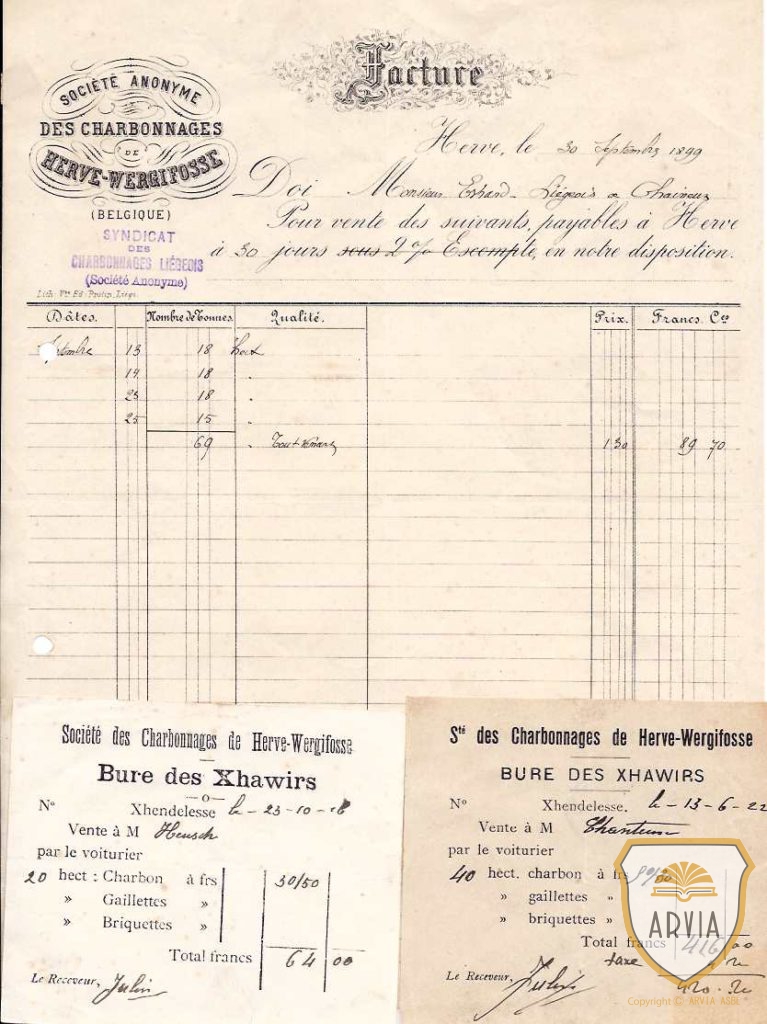 Facture
SOCIÉTÉ ANONYME
DES CHARBONNAGES
DE
HERVE-WERGIFOSSE
(BELGIQUE)
SYNDICAT
DES
CHARBONNAGES LIÉGEOIS
(Société Anonyme)
Lith. Vve Ed. Protin, Liége.
Herve, le 30 Septembre 1899
Doi Monsieur Liégeois a Chaineux
Pour vente des suivants, payables à Herve
à 30 jours sous 2 % Escompte, en notre disposition.
Dâtes. Nombre de Tonnes. Qualité. Prix. Francs. Ces
13 18 hect
14 18 "
23 18 "
25 15 "
69 " Tout venant 1 30 89 70
Société des Charbonnages de Herve-Wergifosse
Bure des Xhawirs
N° Xhendelesse le - 23-10-18
Vente à M Heusch
par le voiturier
20 hect : Charbon à frs 30/50
» Gaillettes »
» Briquettes »
Total francs 64 00
Le Receveur, Julin
Sté des Charbonnages de Herve-Wergifosse
BURE DES XHAWIRS
N° Xhendelesse. le - 13-6-22
Vente à M
par le voiturier
40 hect. charbon à frs
» gaillettes »
» briquettes »
Total francs 416 00
taxe
420.20
Le Receveur, Julin
ARVIA
Copyright © ARVIA ASBL